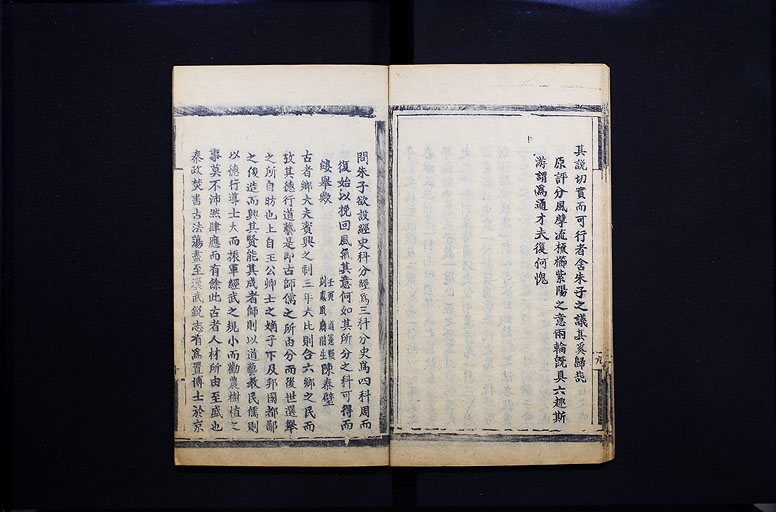 其說切實而可行者舍朱子之議其奚歸哉
原評分風擘流極櫛紫陽之意兩輪旣具六趣斯
游謂爲通才夫復何愧
問朱子欲設經史科分經爲三科分史爲四科周而
復始以挽回風氣其意何如其所分之科可得而
縷舉歟
陳泰璧
古者鄉大夫賓興之制三年大比則合六鄉之民而
攷其德行道藝是即古師儒之所由分而後世選舉
之所自昉也上自王公卿士之嫡子下及邦國都鄙
之俊造而興其賢能其成者師則以道藝教民儒則
以德行導士大而振軍經武之規小而勸農樹植之
事莫不沛然肆應而有餘此古者人材所由至盛也
秦政焚書古法蕩盡至漢武銳志有爲置博士於京